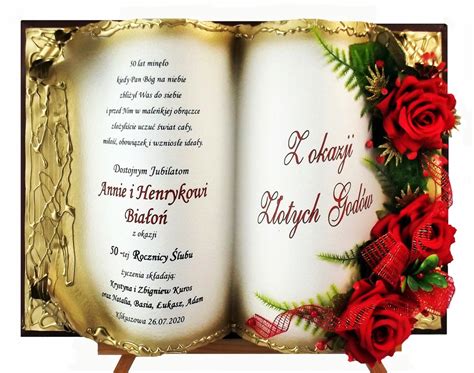 50 lat minęło
kiedy Pan Bóg na niebie
zbliżył Was do siebie
i przed Nim w maleńkiej obrączce
złożyliście uczuć świat cały,
miłość, obowiązek i wzniosłe ideały.
Dostojnym Jubilatom
Annie i Henrykowi
Białoń
z okazji
50 -tej Rocznicy Ślubu
życzenia składają:
Krystyna i Zbigniew Kuros
oraz Natalia, Basia, Łukasz, Adam
Klikuszowa 26.07.2020
Z okazji
Złotych Godów